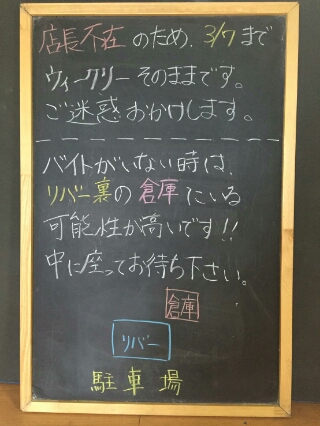 店長不在のため、3/7まで
ウィークリーそのままです。
ご迷惑おかけします。
バイトがいない時は、
リバー裏の倉庫にいる
可能性が高いです!!
中に座ってお待ち下さい。
倉庫
リバー
駐車場